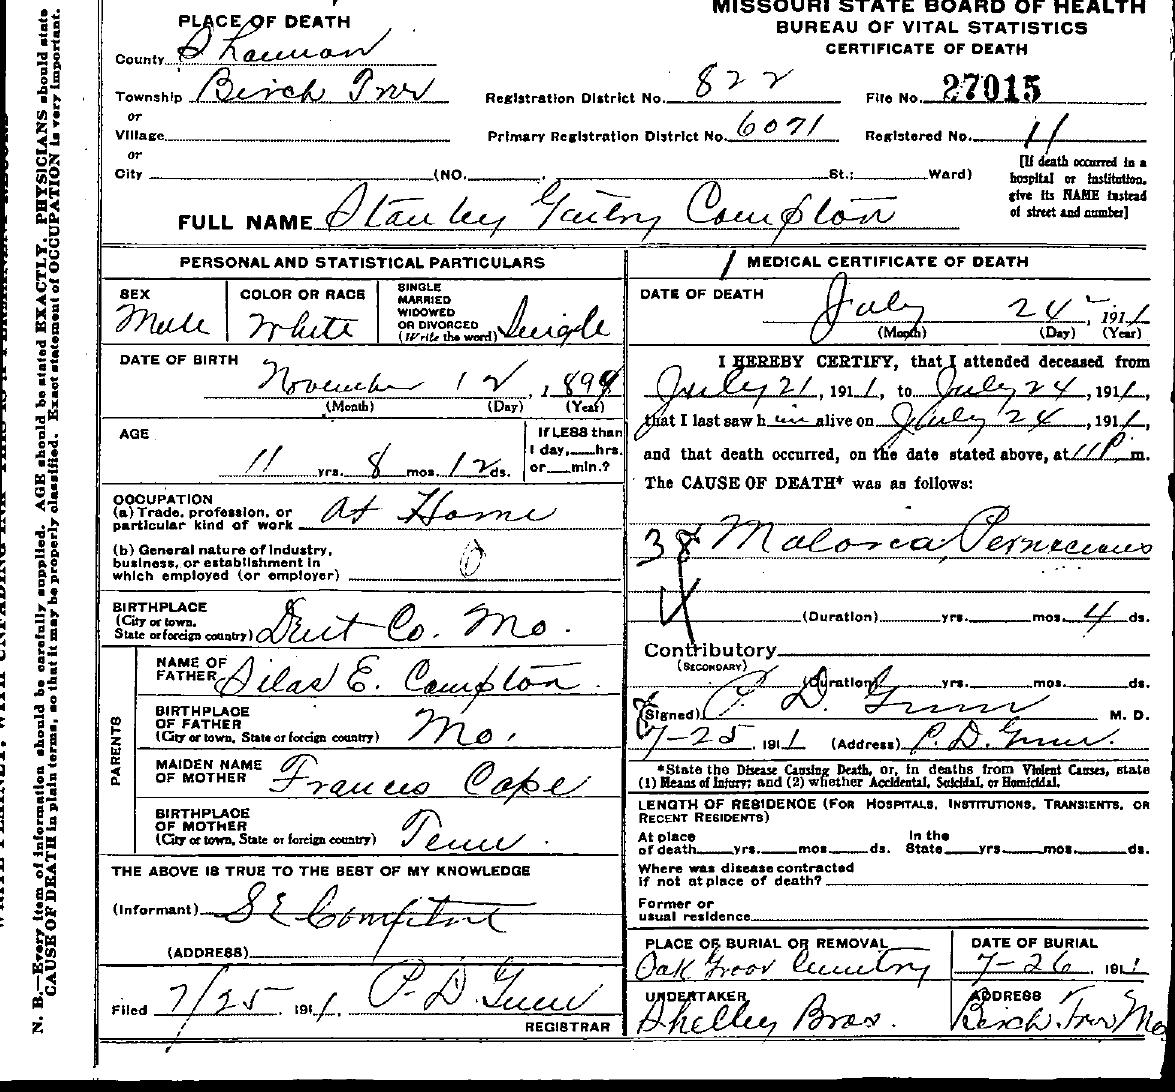 MISSOURI STATE BOARD OF HEALTH
BUREAU OF VITAL STATISTICS
CERTIFICATE OF DEATH
PLACE OF DEATH
County Shannon
Township Birch Tree
or
Village
or
City (NO. St.; Ward)
Registration District No. 822
File No. 27015
Primary Registration District No. 6071
Registered No. 11
[If death occurred in a
hospital or institution,
give its NAME instead
of street and number]
FULL NAME Stanley Gentry Compton
PERSONAL AND STATISTICAL PARTICULARS
SEX Male
COLOR OR RACE White
SINGLE
MARRIED
WIDOWED
OR DIVORCED
(Write the word) Single
DATE OF BIRTH
November 12, 1899
(Month) (Day) (Year)
AGE
11 yrs. 8 mos. 12 ds.
If LESS than
1 day, hrs.
or min.?
OCCUPATION
(a) Trade, profession, or
particular kind of work At Home
(b) General nature of industry,
business, or establishment in
which employed (or employer) 0
BIRTHPLACE
(City or town,
State or foreign country) Dent Co. Mo.
PARENTS
NAME OF
FATHER Silas E. Compton
BIRTHPLACE
OF FATHER
(City or town, State or foreign country) Mo.
MAIDEN NAME
OF MOTHER Frances Cope
BIRTHPLACE
OF MOTHER
(City or town, State or foreign country) Tenn.
THE ABOVE IS TRUE TO THE BEST OF MY KNOWLEDGE
(Informant) S E Compton
(ADDRESS)
Filed 7/25 1911. P. D. Gunn
REGISTRAR
1 MEDICAL CERTIFICATE OF DEATH
DATE OF DEATH
July 24, 1911
(Month) (Day) (Year)
I HEREBY CERTIFY, that I attended deceased from
July 21, 1911, to July 24, 1911,
that I last saw him alive on July 24, 1911,
and that death occurred, on the date stated above, at 11 P. m.
The CAUSE OF DEATH* was as follows:
Malaria, Pernicious
38
4
(Duration) yrs. mos. 4 ds.
Contributory
(SECONDARY)
(Duration) yrs. mos. ds.
(Signed) P. D. Gunn M. D.
7-25 1911 (Address) P. D. Gunn.
*State the Disease Causing Death, or, in deaths from Violent Causes, state
(1) Means of Injury; and (2) whether Accidental, Suicidal, or Homicidal.
LENGTH OF RESIDENCE (FOR HOSPITALS, INSTITUTIONS, TRANSIENTS, OR
RECENT RESIDENTS)
At place
of death yrs. mos. ds.
In the
State yrs. mos. ds.
Where was disease contracted
if not at place of death?
Former or
usual residence
PLACE OF BURIAL OR REMOVAL
Oak Groov Cemetry
DATE OF BURIAL
7-26 1911
UNDERTAKER
Shelley Bros.
ADDRESS
Birch Tree Mo
N. B.—Every item of information should be carefully supplied. AGE should be stated EXACTLY. PHYSICIANS should state
CAUSE OF DEATH in plain terms, so that it may be properly classified. Exact statement of OCCUPATION is very important.